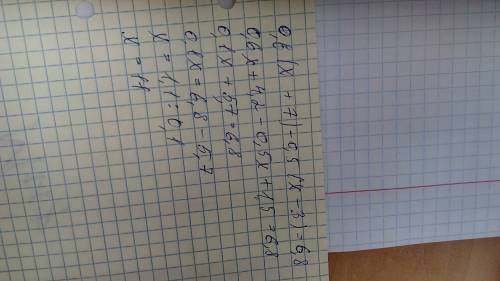 0,6(x + 7) - 0,5(x - 3) = 6,8
0,6x + 4,2 - 0,5x + 1,5 = 6,8
0,1x + 5,7 = 6,8
0,1x = 6,8 - 5,7
x = 1,1 : 0,1
x = 11